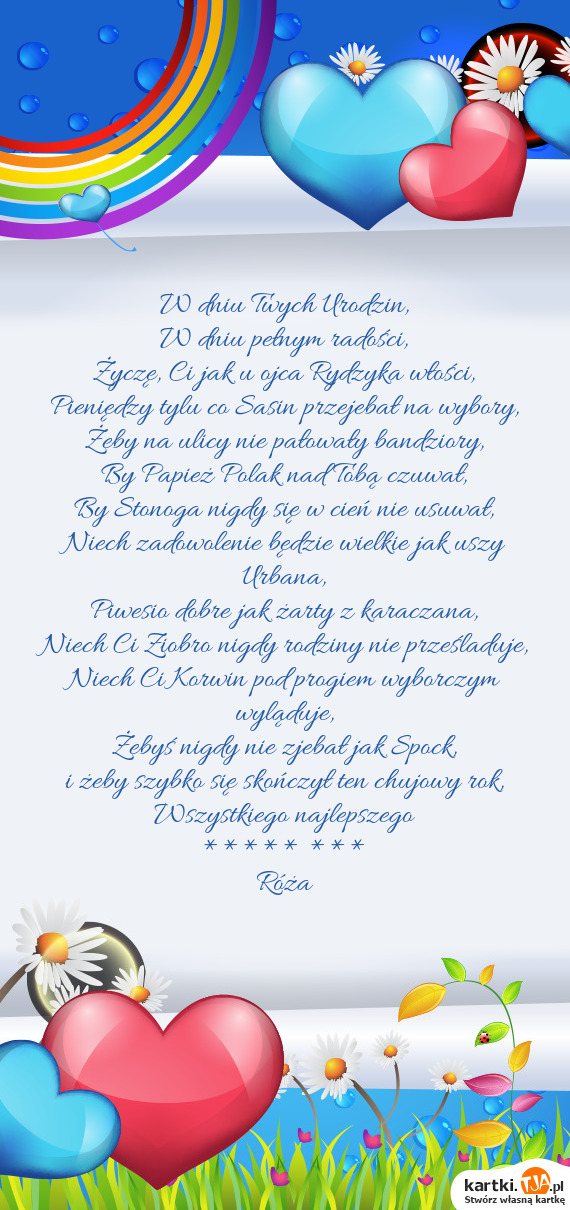 W dniu Twych Urodzin,
W dniu pełnym radości,
Życzę, Ci jak u ojca Rydzyka włości,
Pieniędzy tylu co Sasin przejebał na wybory,
Żeby na ulicy nie pałowały bandziory,
By Papież Polak nad Tobą czuwał,
By Stonoga nigdy się w cień nie usuwał,
Niech zadowolenie będzie wielkie jak uszy
Urbana,
Piwesio dobre jak żarty z karaczana,
Niech Ci Ziobro nigdy rodziny nie prześladuje,
Niech Ci Korwin pod progiem wyborczym
wyląduje,
Żebyś nigdy nie zjebał jak Spock,
i żeby szybko się skończył ten chujowy rok,
Wszystkiego najlepszego
* * * * *  * * *
Róża
kartki.TJA.pl
Stwórz własną kartkę